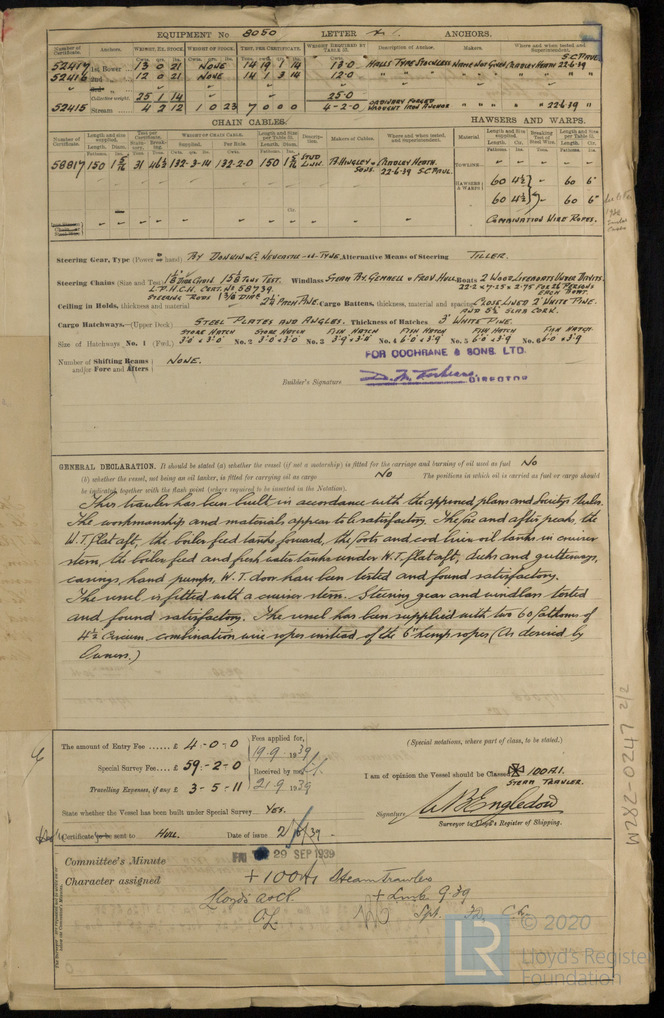 EQUIPMENT No 8050 LETTER ANCHORS.
Number of Certificate. Anchors. WEIGHT, EX. STOCK. WEIGHT OF STOCK. TEST, PER CERTIFICATE. WEIGHT REQUIRED BY TABLE 53. Description of Anchor. Makers. Where and when tested and Superintendent.
S.C. PAUL.
52417 1st Bower 13 0 21 NONE 14 19 1 14 13.0 HALLS TYPE STOCKLESS NAME NOT GIVEN, CRADLEY HEATH 22-6-39
52416 2nd " 12 0 21 NONE 14 1 3 14 12.0 " " " " " " "
Collective weight 25 1 14 25.0
52415 Stream 4 2 12 1 0 23 7 0 0 0 4-2-0 ORDINARY FORGED WROUGHT IRON ANCHOR " " " " 22.6.39 "
CHAIN CABLES. HAWSERS AND WARPS.
Number of Certificate. Length and size supplied. Test per Certificate. WEIGHT OF CHAIN CABLE. Length and size per Table 53. Description. Makers of Cables. Where and when tested, and Superintendent. Material. Length and size supplied. Breaking Test of Steel Wire. Length and size per Table 53.
58817 150 1 5/16 31 46½ 132-3-14 132-2-0 150 1 5/16 STUD LINK. N. HINGLEY & SONS. CRADLEY HEATH. 22-6-39 S.C. PAUL.
TOWLINE
HAWSERS & WARPS 60 4½" 60 6"
60 4½" 60 6"
COMBINATION WIRE ROPES.
Steering Gear, Type (Power or hand) BY DONKIN & Co NEWCASTLE-ON-TYNE. Alternative Means of Steering TILLER.
Steering Chains (Size and Test) 15½ TONS TEST. Windlass STEAM BY GEMMELL & FROW HULL. Boats 2 WOOD LIFEBOATS UNDER DAVITS.
L.P.H.C.H. CERT. No 58739. EACH BOAT.
STEERING RODS 1 3/8 DIAR
Ceiling in Holds, thickness and material 2½ PITCH PINE. Cargo Battens, thickness, material and spacing CLOSE LINED 2" WHITE PINE. AND 5½" SLAB CORK.
Cargo Hatchways.—(Upper Deck) STEEL PLATES AND ANGLES. Thickness of Hatches 3" WHITE PINE.
STORE HATCH STORE HATCH FISH HATCH FISH HATCH FISH HATCH FISH HATCH
Size of Hatchways No. 1 (Fwd.) 3'0 x 3'0" No. 2 3'0 x 3'0" No. 3 3'9 x 3'0" No. 4 6'0 x 3'9 No. 5 6'0 x 3'9 No. 6 6'0 x 3'9
Number of Shifting Beams and/or Fore and Afters } NONE.
FOR COCHRANE & SONS. LTD.
Builder's Signature DIRECTOR
GENERAL DECLARATION. It should be stated (a) whether the vessel (if not a motorship) is fitted for the carriage and burning of oil used as fuel No
(b) whether the vessel, not being an oil tanker, is fitted for carrying oil as cargo No The positions in which oil is carried as fuel or cargo should
be indicated, together with the flash point (where required to be inserted in the Notation).
This trawler has been built in accordance with the approved plans and Society's Rules.
The workmanship and materials appear to be satisfactory. The fore and after peaks, the
W.T. flat aft, the boiler feed tanks forward, the foots and cod liver oil tanks in cruiser
stern, the boiler feed and fresh water tanks under W.T. flat aft, decks and gutterways,
casings, hand pumps, W.T. door have been tested and found satisfactory.
The vessel is fitted with a cruiser stern. Steering gear and windlass tested
and found satisfactory. The vessel has been supplied with two 60 fathoms of
4½ Circum combination wire ropes instead of the 6" hemp ropes (As desired by
Owners.)
W282-0247 2/2
The amount of Entry Fee ...... £ 4-0-0
Fees applied for, 19.9.1939
(Special notations, where part of class, to be stated.)
Special Survey Fee.... £ 59-2-0
Received by me,
I am of opinion the Vessel should be Classed 100A1. STEAM TRAWLER.
Travelling Expenses, if any £ 3-5-11 21.9.1939
State whether the Vessel has been built under Special Survey YES.
Signature W B Engledow
Surveyor to Lloyd's Register of Shipping.
Certificate to be sent to HULL. Date of issue
Committee's Minute FRI 29 SEP 1939
Character assigned + 100A1 Steam Trawlers
Lloyd's A & CP. + Lmb. 9.39
CL
LR
© 2020
Lloyd's Register
Foundation